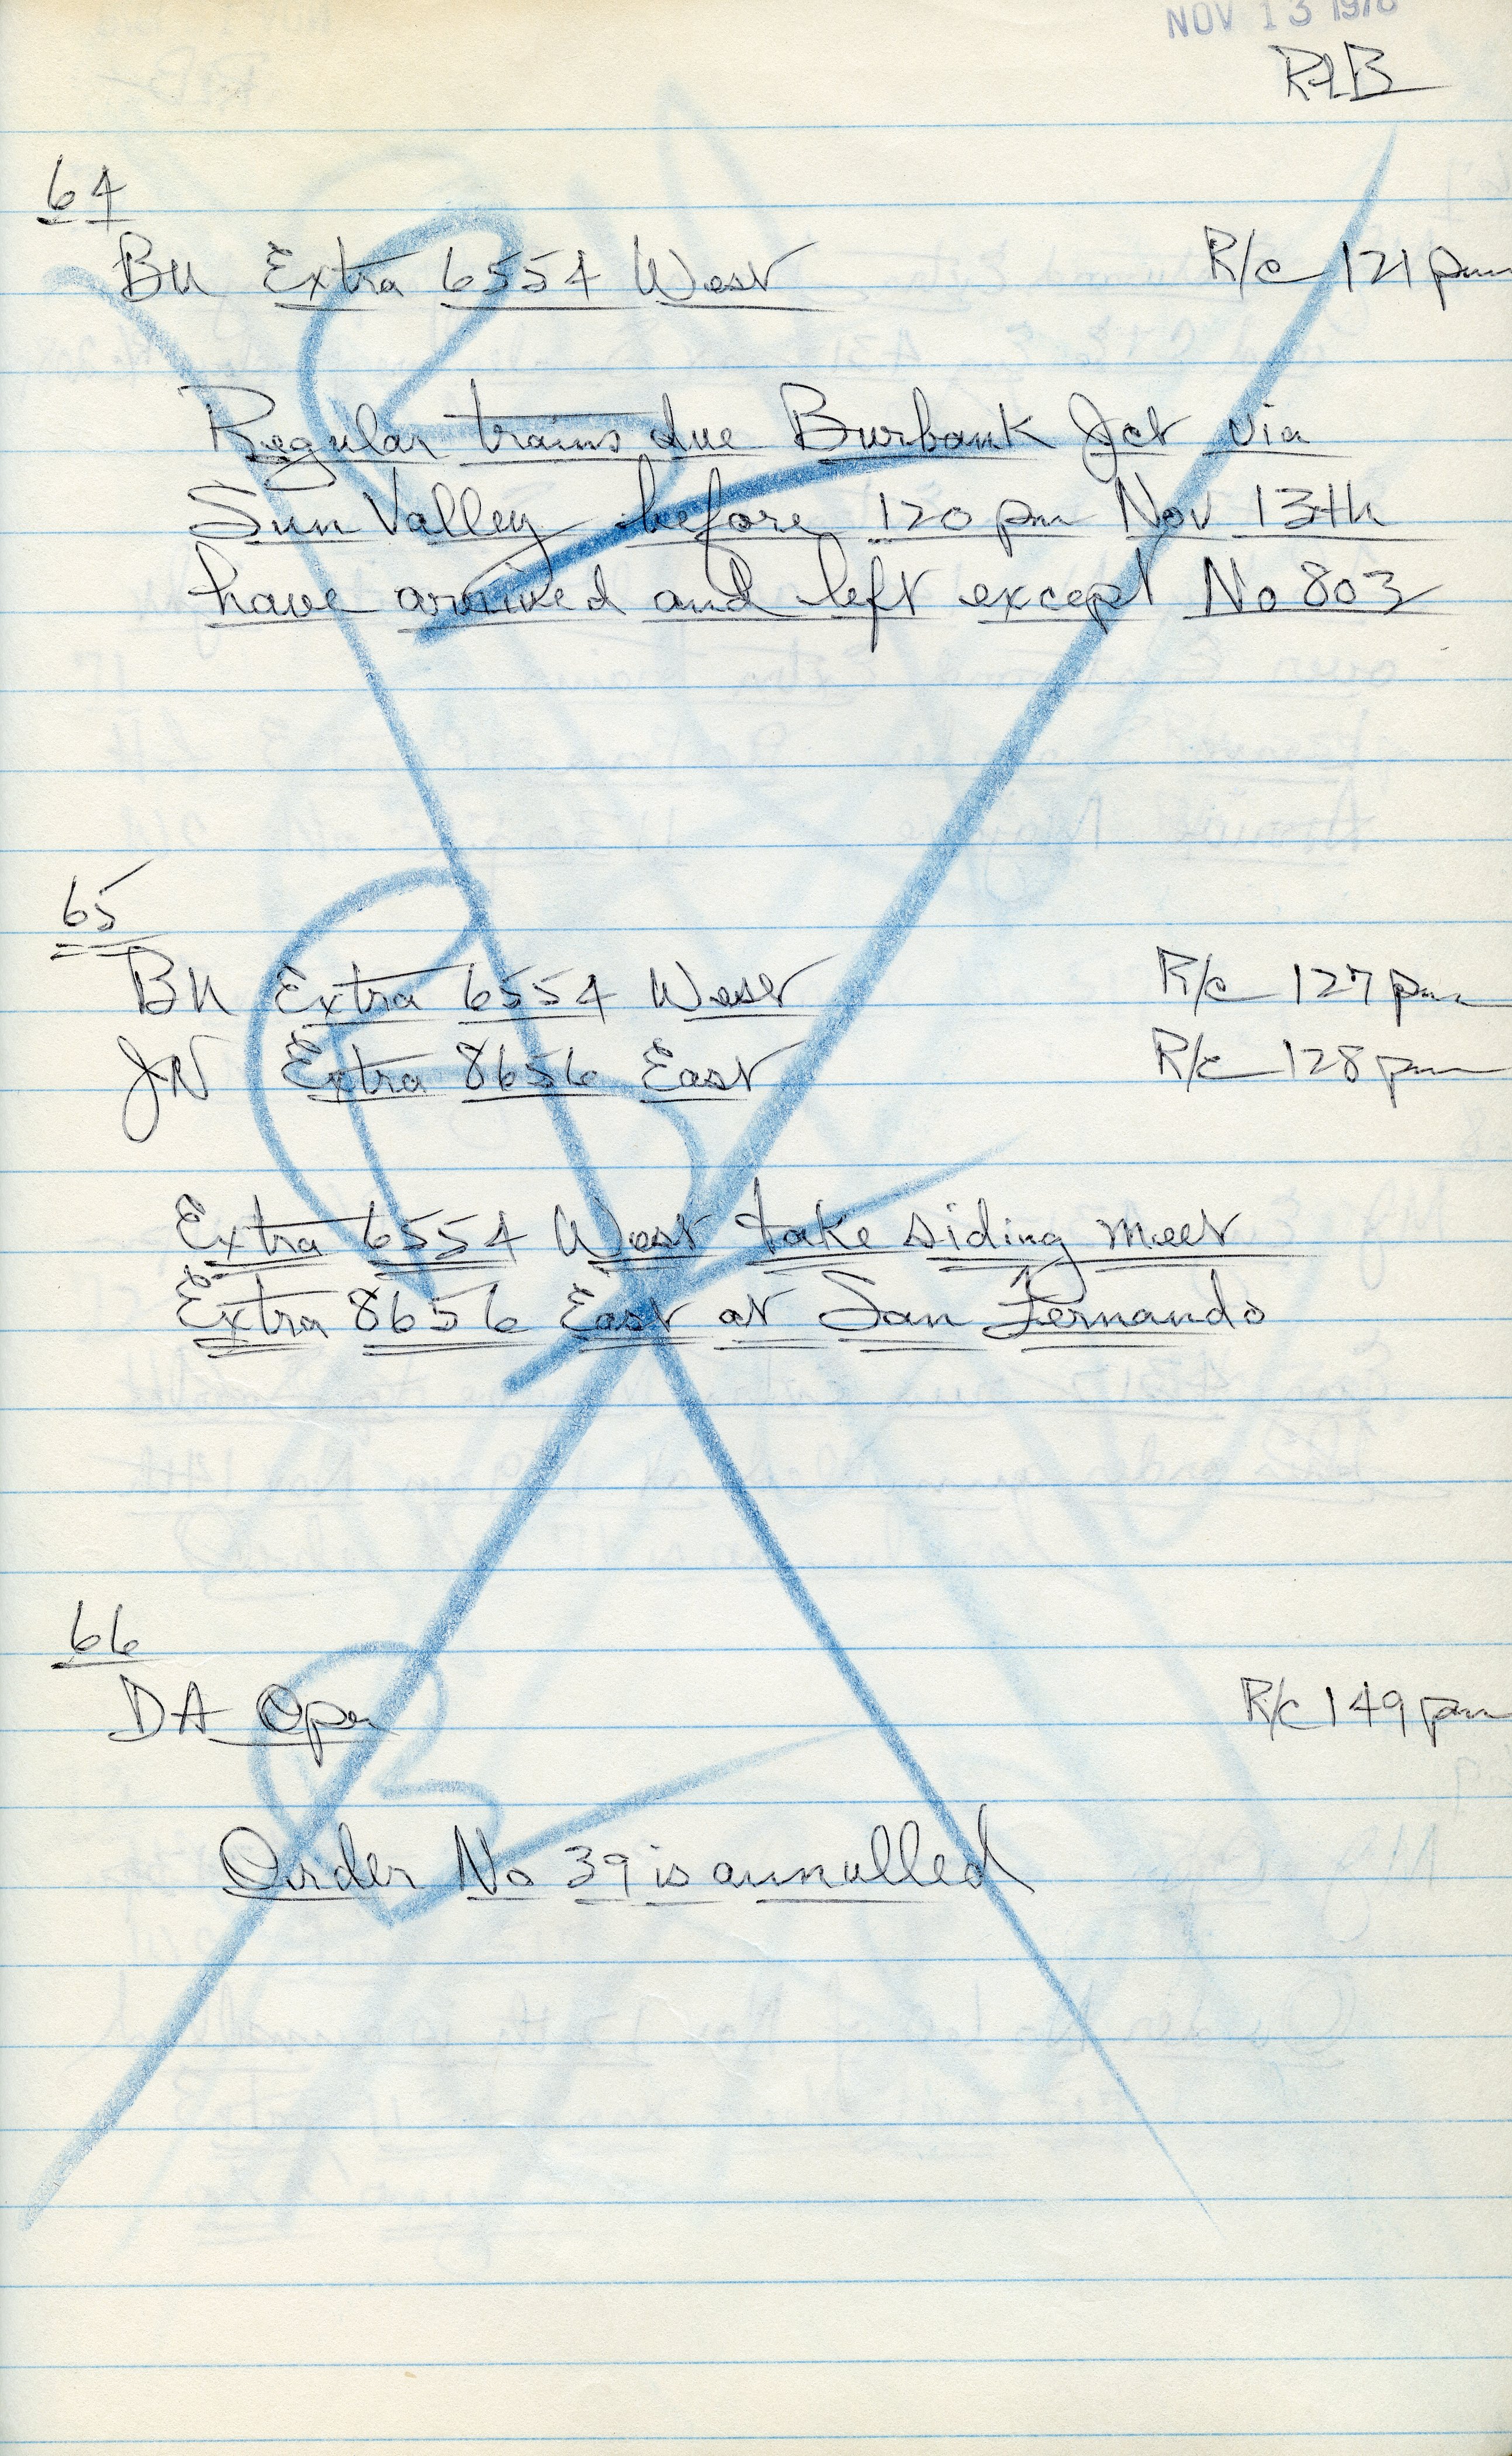 NOV 13 1978
RLB
64
BU Extra 6554 West R/c 121 pm
Regular trains due Burbank Jct via
Sun Valley before 120 pm Nov 13th
have arrived and left except No 803
65
BU Extra 6554 West R/c 127 pm
JN Extra 8656 East R/c 128 pm
Extra 6554 West take siding meet
Extra 8656 East at San Fernando
66
DA Opr R/c 149 pm
Order No 39 is annulled